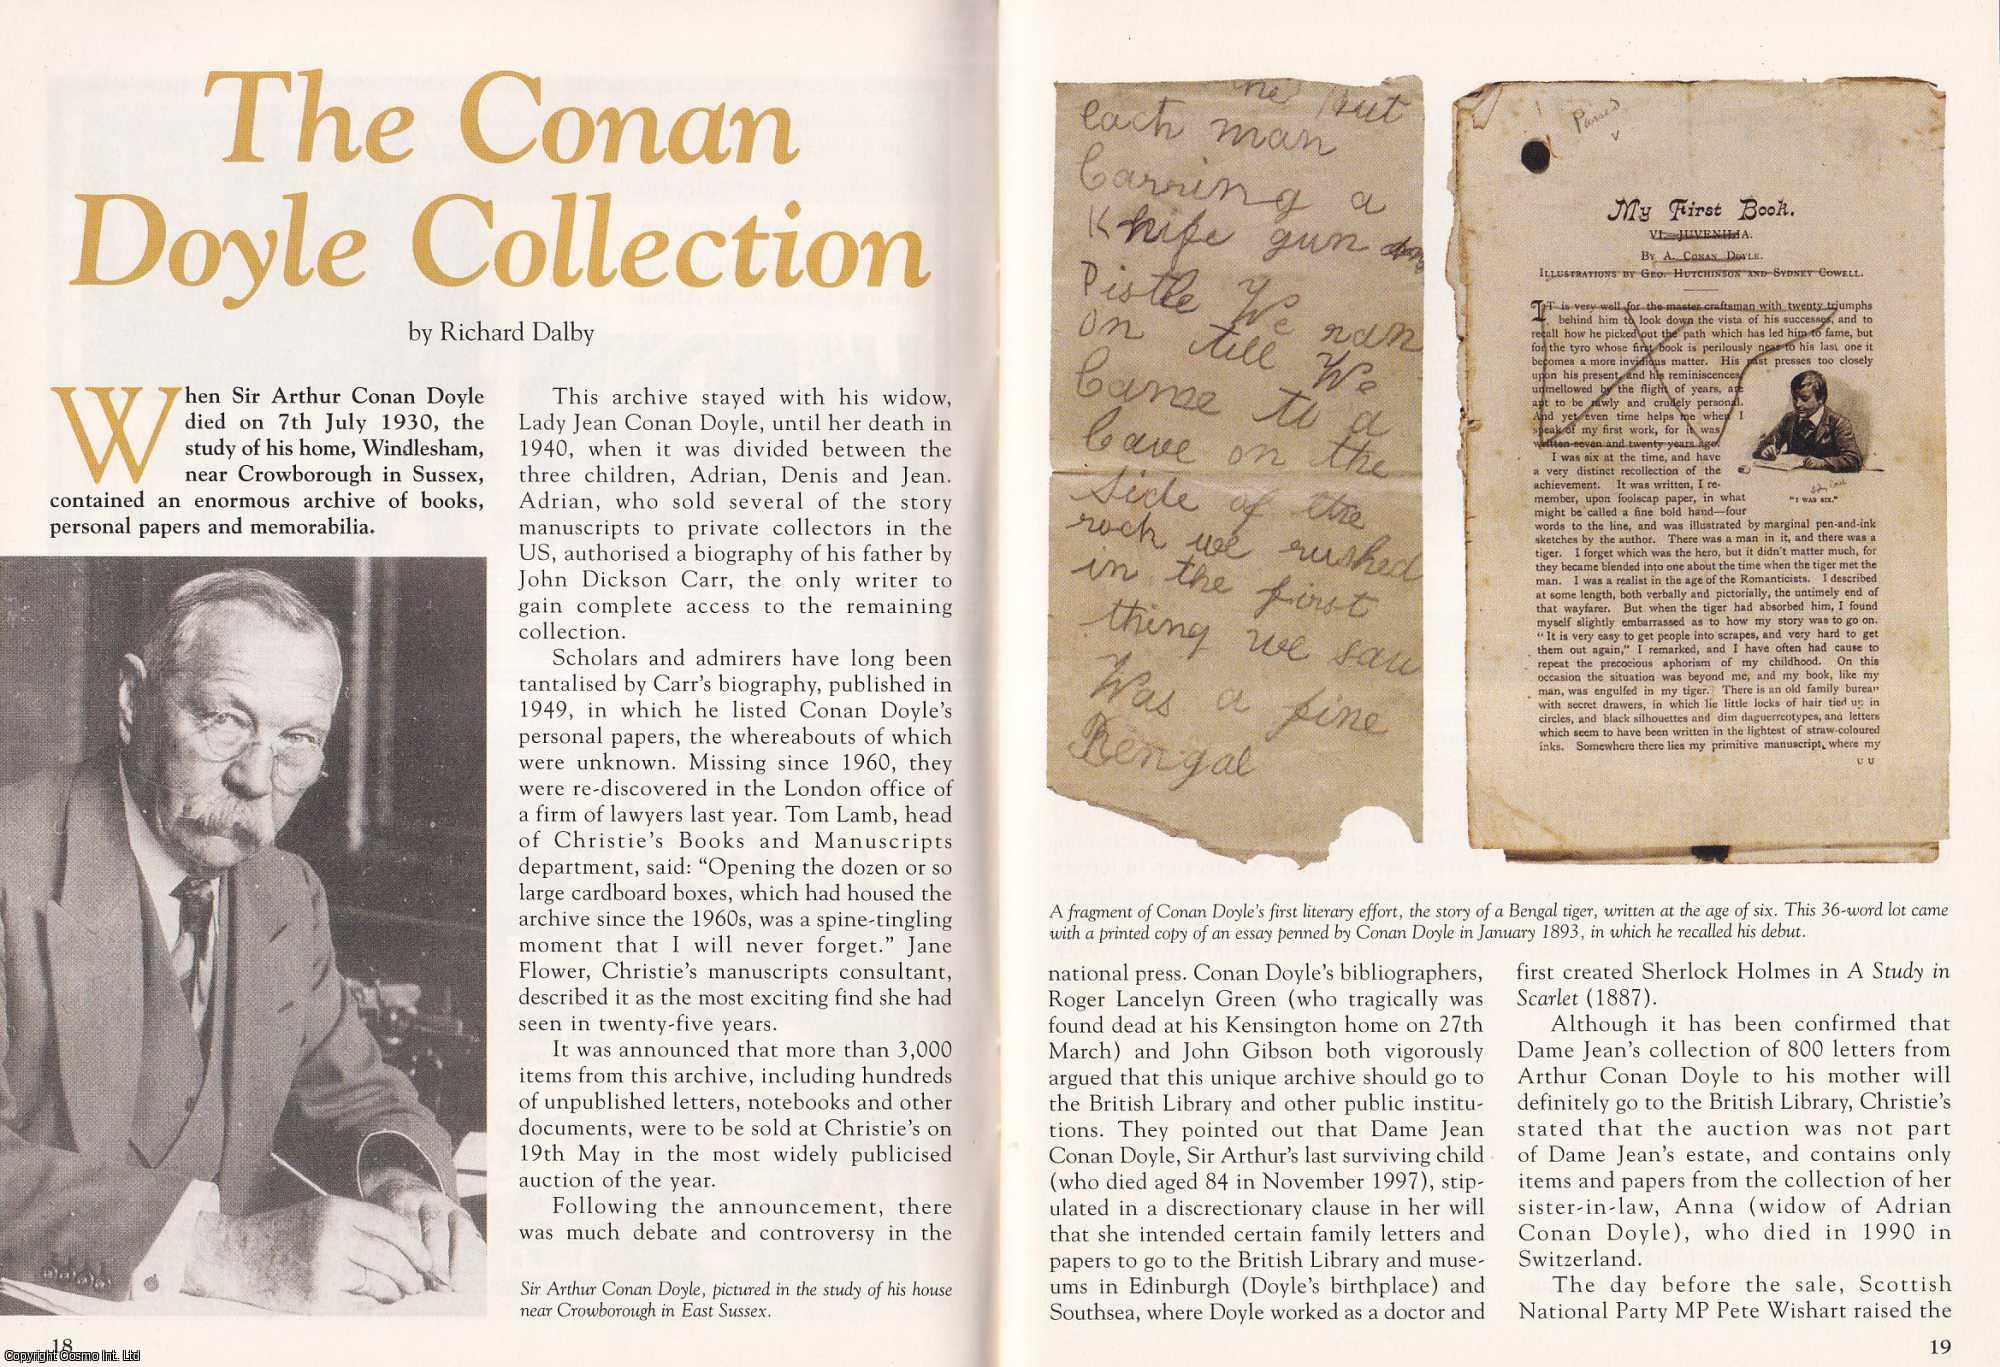 The Conan
Doyle Collection
by Richard Dalby
When Sir Arthur Conan Doyle
died on 7th July 1930, the
study of his home, Windlesham,
near Crowborough in Sussex,
contained an enormous archive of books,
personal papers and memorabilia.
This archive stayed with his widow,
Lady Jean Conan Doyle, until her death in
1940, when it was divided between the
three children, Adrian, Denis and Jean.
Adrian, who sold several of the story
manuscripts to private collectors in the
US, authorised a biography of his father by
John Dickson Carr, the only writer to
gain complete access to the remaining
collection.
Scholars and admirers have long been
tantalised by Carr's biography, published in
1949, in which he listed Conan Doyle's
personal papers, the whereabouts of which
were unknown. Missing since 1960, they
were re-discovered in the London office of
a firm of lawyers last year. Tom Lamb, head
of Christie's Books and Manuscripts
department, said: “Opening the dozen or so
large cardboard boxes, which had housed the
archive since the 1960s, was a spine-tingling
moment that I will never forget.” Jane
Flower, Christie's manuscripts consultant,
described it as the most exciting find she had
seen in twenty-five years.
It was announced that more than 3,000
items from this archive, including hundreds
of unpublished letters, notebooks and other
documents, were to be sold at Christie's on
19th May in the most widely publicised
auction of the year.
Following the announcement, there
was much debate and controversy in the
Sir Arthur Conan Doyle, pictured in the study of his house
near Crowborough in East Sussex.
18
Copyright Cosmo Int. Ltd
each man
Carring a
Knife gun
Pistle We ran
on till We
Came to a
Cave on the
Side of the
rock we rushed
in the first
thing we saw
Was a fine
Bengal
Passed
My First Book.
VI.—JUVENILIA.
By A. Conan Doyle.
Illustrations by Geo. Hutchinson and Sydney Cowell.
IT is very well for the master craftsman with twenty triumphs
behind him to look down the vista of his successes, and to
recall how he picked out the path which has led him to fame, but
for the tyro whose first book is perilously near to his last one it
becomes a more invidious matter. His past presses too closely
upon his present, and his reminiscences,
unmellowed by the flight of years, are
apt to be rawly and crudely personal.
And yet even time helps me when I
speak of my first work, for it was
written seven and twenty years ago.
I was six at the time, and have
a very distinct recollection of the
achievement. It was written, I re-
member, upon foolscap paper, in what
might be called a fine bold hand—four
words to the line, and was illustrated by marginal pen-and-ink
sketches by the author. There was a man in it, and there was a
tiger. I forget which was the hero, but it didn't matter much, for
they became blended into one about the time when the tiger met the
man. I was a realist in the age of the Romanticists. I described
at some length, both verbally and pictorially, the untimely end of
that wayfarer. But when the tiger had absorbed him, I found
myself slightly embarrassed as to how my story was to go on.
“It is very easy to get people into scrapes, and very hard to get
them out again,” I remarked, and I have often had cause to
repeat the precocious aphorism of my childhood. On this
occasion the situation was beyond me, and my book, like my
man, was engulfed in my tiger. There is an old family bureau
with secret drawers, in which lie little locks of hair tied up in
circles, and black silhouettes and dim daguerreotypes, and letters
which seem to have been written in the lightest of straw-coloured
inks. Somewhere there lies my primitive manuscript, where my
U U
“I WAS SIX.”
A fragment of Conan Doyle's first literary effort, the story of a Bengal tiger, written at the age of six. This 36-word lot came
with a printed copy of an essay penned by Conan Doyle in January 1893, in which he recalled his debut.
national press. Conan Doyle's bibliographers,
Roger Lancelyn Green (who tragically was
found dead at his Kensington home on 27th
March) and John Gibson both vigorously
argued that this unique archive should go to
the British Library and other public institu-
tions. They pointed out that Dame Jean
Conan Doyle, Sir Arthur's last surviving child
(who died aged 84 in November 1997), stip-
ulated in a discretionary clause in her will
that she intended certain family letters and
papers to go to the British Library and muse-
ums in Edinburgh (Doyle's birthplace) and
Southsea, where Doyle worked as a doctor and
first created Sherlock Holmes in A Study in
Scarlet (1887).
Although it has been confirmed that
Dame Jean's collection of 800 letters from
Arthur Conan Doyle to his mother will
definitely go to the British Library, Christie's
stated that the auction was not part
of Dame Jean's estate, and contains only
items and papers from the collection of her
sister-in-law, Anna (widow of Adrian
Conan Doyle), who died in 1990 in
Switzerland.
The day before the sale, Scottish
National Party MP Pete Wishart raised the
19